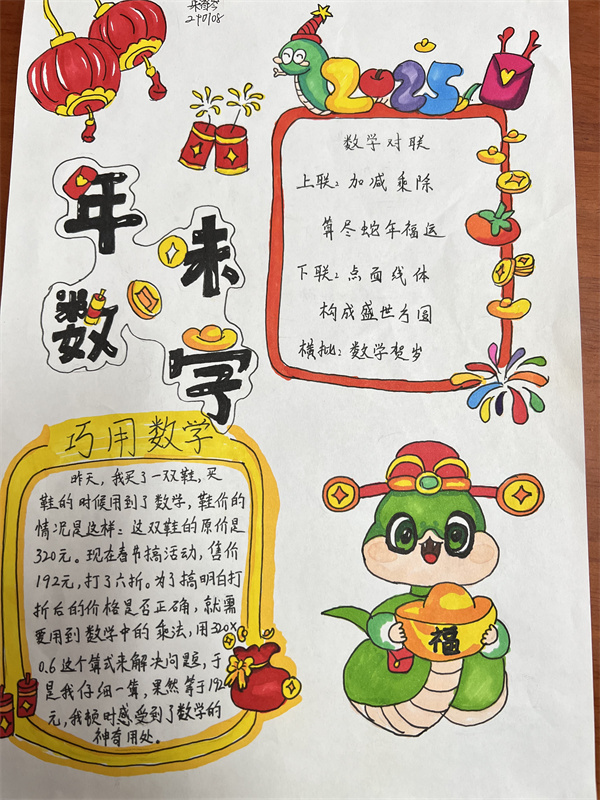 240108
2025
年味
数字
数学对联
上联：加减乘除
算尽蛇年福运
下联：点面线体
构成盛世方圆
横批：数学贺岁
巧用数学
昨天，我买了一双鞋，买
鞋的时候用到了数学，鞋价的
情况是这样：这双鞋的原价是
320元。现在春节搞活动，售价
192元，打了六折。为了搞明白打
折后的价格是否正确，就需
要用到数学中的乘法，用320×
0.6这个算式来解决问题，于
是我仔细一算，果然等于192
元，我顿时感受到了数学的
神奇用处。
福